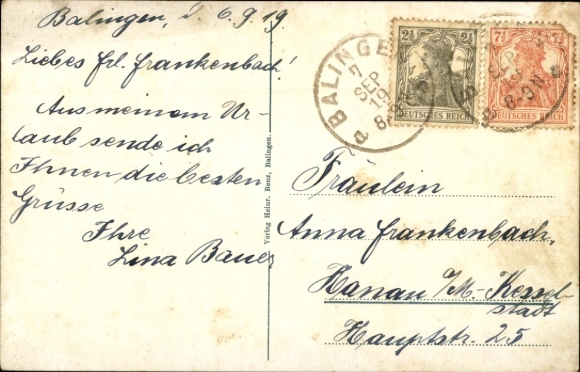 Balingen, d. 6.9.19
Liebes Frl. Frankenbach!
Aus meinem Ur-
laub sende ich
Ihnen die besten
Grüsse
Ihre
Lina Bauer
Verlag Heinr. Renz, Balingen.
BALINGEN
7 SEP 19
8-9 N
a
2½ 2½
DEUTSCHES REICH
7½ 7½
DEUTSCHES REICH
8-9 N
Fräulein
Anna Frankenbach,
Hanau a/M.-Kessel-
stadt
Hauptstr. 25